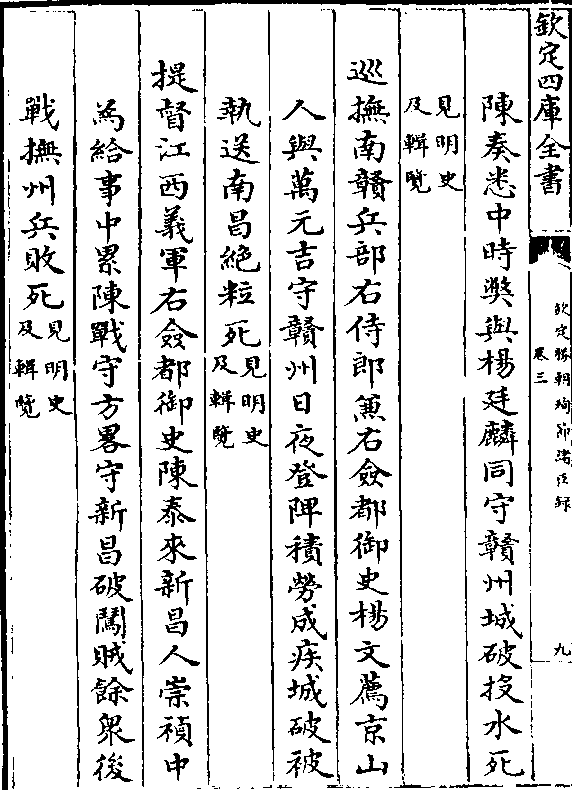 欽定四庫全書
欽定勝朝殉節諸臣録
卷三
九
陳奏悉中時獘與楊廷麟同守贛州城破投水死
見明史
及輯覽
巡撫南贛兵部右侍郎兼右僉都御史楊文薦京山
人與萬元吉守贛州日夜登陴積勞成疾城破被
執送南昌絶粒死見明史
及輯覽
提督江西義軍右僉都御史陳泰來新昌人崇禎中
為給事中累陳戰守方畧守新昌破闖賊餘衆後
戰撫州兵敗死見明史
及輯覽